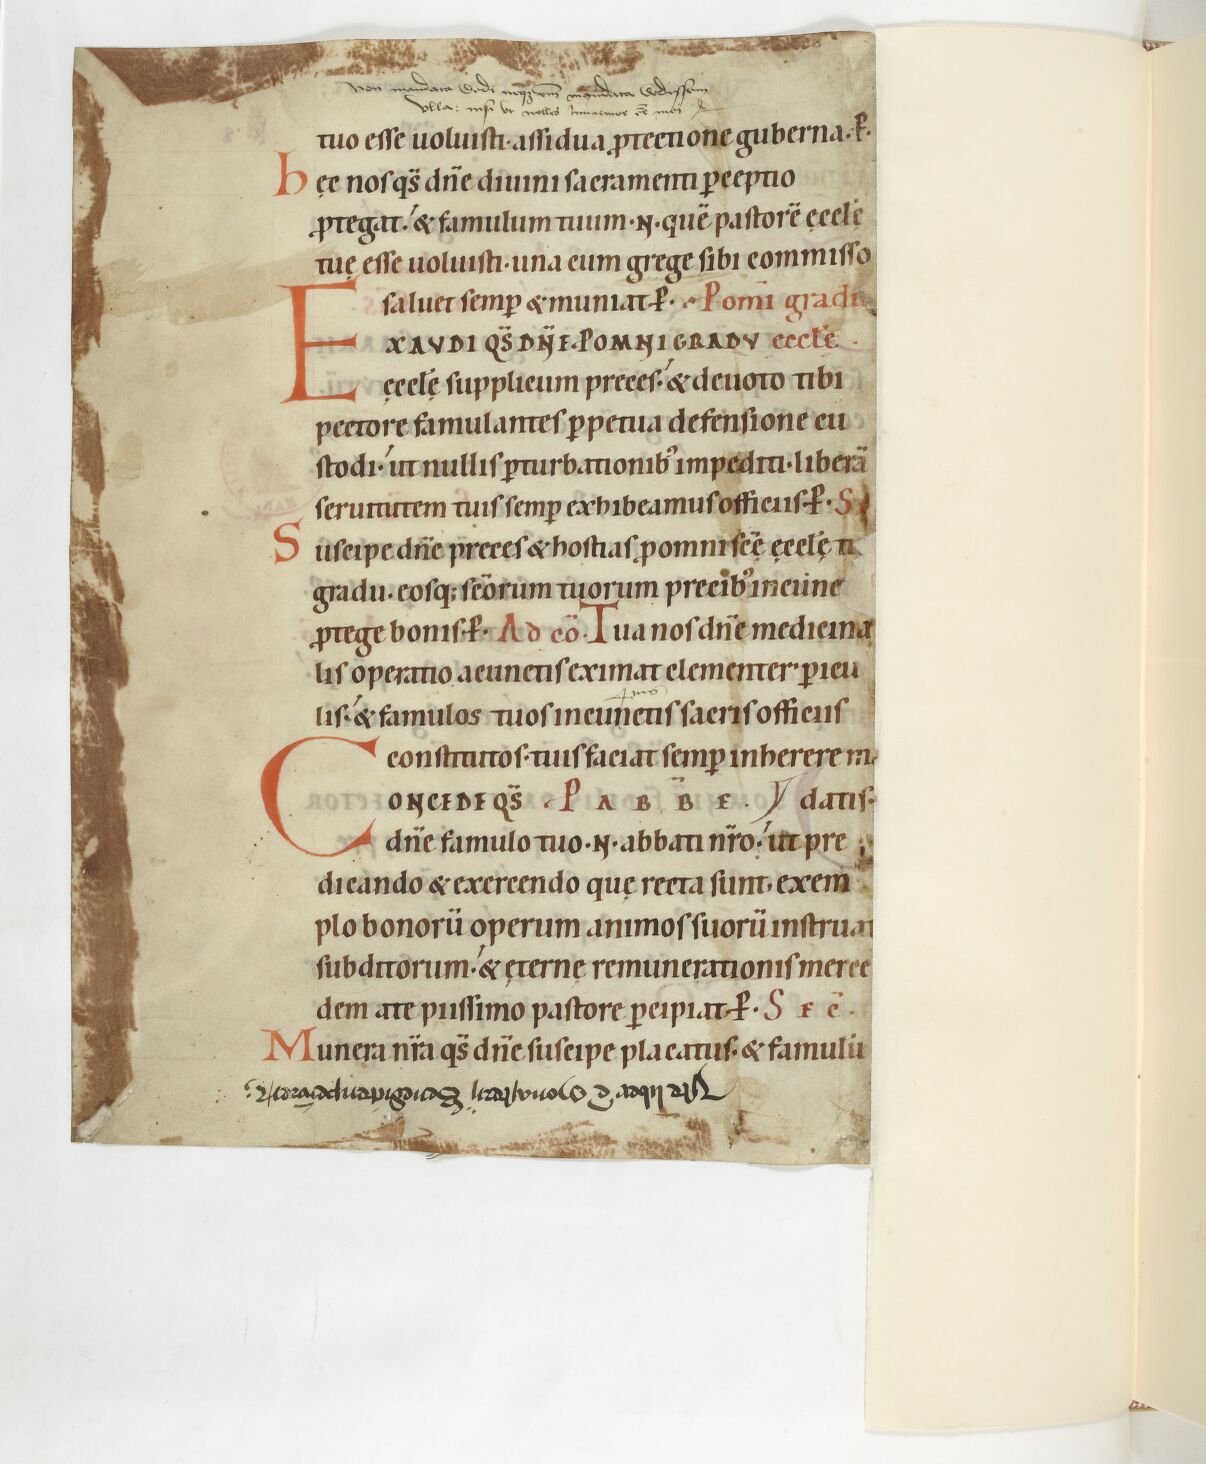 Non mandata dedi neq; em mandata dedissem
Vlla: nisi vt nolles
tuo esse uoluisti· assidua ꝓtectione guberna·P·
hęc nos qs̄ dn̄e diuini sacramenti ꝑceptio
ꝓtegat·́ & famulum tuum·N·quē pastorē ęccłę
tuę esse uoluisti· una cum grege sibi commisso
saluet semꝑ & muniat·P· Pom̄i gradu
EXAVDI QS̄ DN̄E·POMNI GRADV eccłę·
ęccłę supplicum preces·́ & deuoto tibi
pectore famulantes ꝑpetua defensione cu
stodi·́ ut nullis ꝑturbationibꝰ impediti· liberā
seruitutem tuis semꝑ exhibeamus officiis·P· S
Suscipe dn̄e preces & hostias ꝓ omni scę̄ ęccłę
gradu· eosq; scōrum tuorum precibꝰ incune
ꝓtege bonis·P· Ad cō· Tua nos dn̄e medicina
lis operatio a cunctis eximat clementer· ꝑicu
lis·́ & famulos tuos in cunctis sacris officiis
constitutos· tuis faciat semꝑ inherere m
CONCEDE QS̄ · P ABB̄E · datis·
dn̄e famulo tuo·N·abbati nr̄o·́ ut pre
dicando & exercendo quę recta sunt· exem
plo bonorū operum animos suorū instruat
subditorum·́ & ęternę remunerationis merce
dem a te piissimo pastore ꝑcipiat·P· SEC̄·
Munera nr̄a qs̄ dn̄e suscipe placatus· & famulū